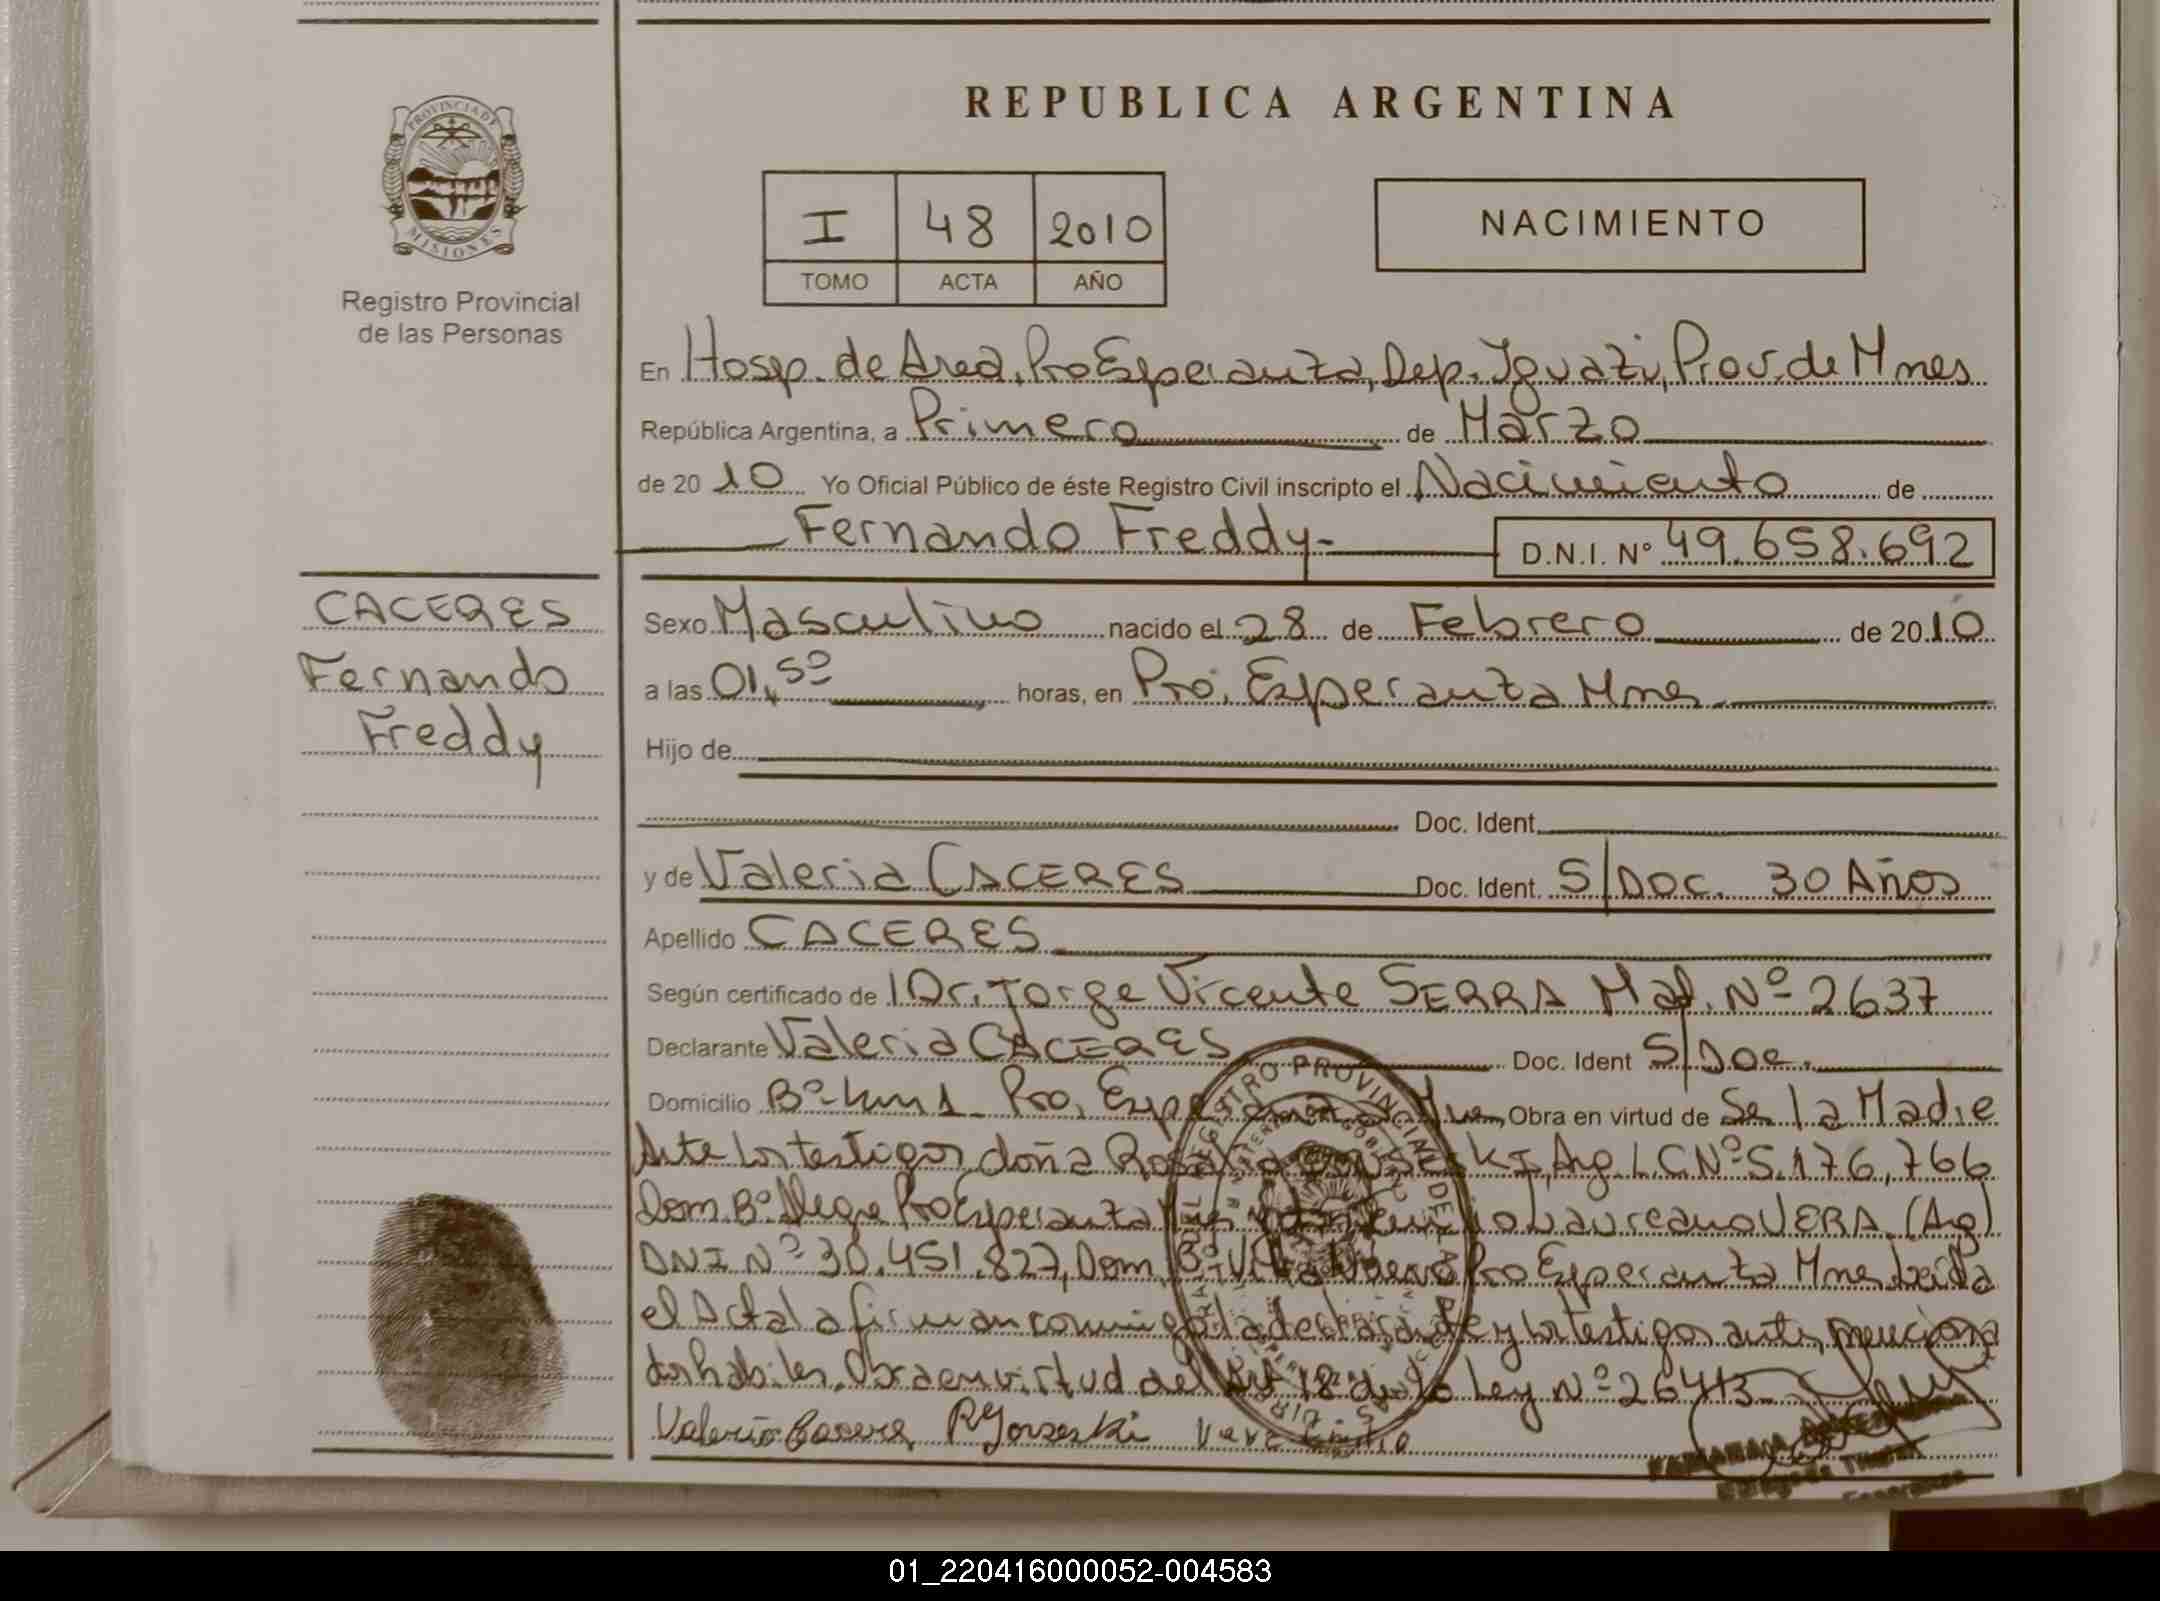 REPUBLICA ARGENTINA
PROVINCIA DE MISIONES
Registro Provincial
de las Personas
I 48 2010
TOMO ACTA AÑO
NACIMIENTO
En Hosp. de Area, Pto Esperanza, Dep. Iguazú, Prov. de Mnes
República Argentina, a Primero de Marzo
de 20 10 Yo Oficial Público de éste Registro Civil inscripto el Nacimiento de
Fernando Freddy- D.N.I. Nº 49.658.692
CACERES
Fernando
Freddy
Sexo Masculino nacido el 28 de Febrero de 20 10
a las 01,50 horas, en Pto. Esperanza Mnes
Hijo de
Doc. Ident.
y de Valeria CACERES Doc. Ident. S/Doc. 30 Años
Apellido CACERES
Según certificado de Dr. Jorge Vicente SERRA Mat. Nº 2637
Declarante Valeria CACERES Doc. Ident S/Doc.
Domicilio Bº km 1 Pto. Obra en virtud de Ser la Madre
Ante los testigos doña Arg. L.C Nº 5.176,766
Dom. Bº Pto Esperanza Laureano VERA (Arg)
DNI Nº 30.451.827, Dom. Bº Villa Nueva Pto Esperanza Mnes Leída
el Acta la firman conmigo la declarante y los testigos antes menciona
dos habiles. Obra en virtud del Art 18 de la Ley Nº 26413
Valeria Vera Emilio
01_220416000052-004583